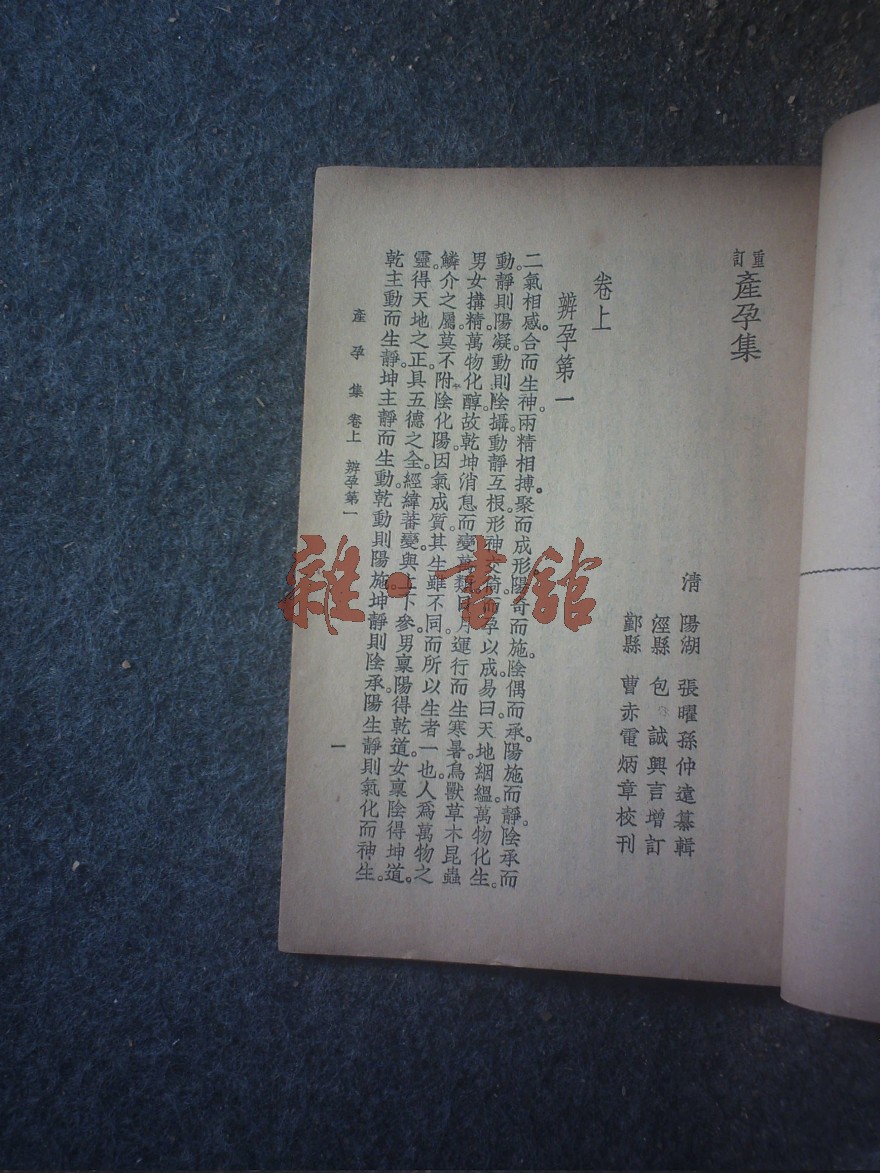 重訂產孕集
清 陽湖 張曜孫仲遠纂輯
涇縣 包誠興言增訂
鄞縣 曹赤電炳章校刊
卷上
辨孕第一
二氣相感。合而生神。兩精相搏。聚而成形。陽奇而施。陰偶而承。陽施而靜。陰承而
動。靜則陽凝。動則陰攝。動靜互根。形神交倚。而孕以成。易曰。天地絪縕。萬物化生。
男女搆精。萬物化醇。故乾坤消息而變萬類。日月運行而生寒暑。鳥獸草木昆蟲
鱗介之屬。莫不附陰化陽。因氣成質。其生雖不同。而所以生者一也。人為萬物之
靈。得天地之正。具五德之全。經緯蕃變。與上下參。男稟陽得乾道。女稟陰得坤道。
乾主動而生靜。坤主靜而生動。乾動則陽施。坤靜則陰承。陽生靜則氣化而神生。
產孕集 卷上 辨孕第一
一
雜·書館